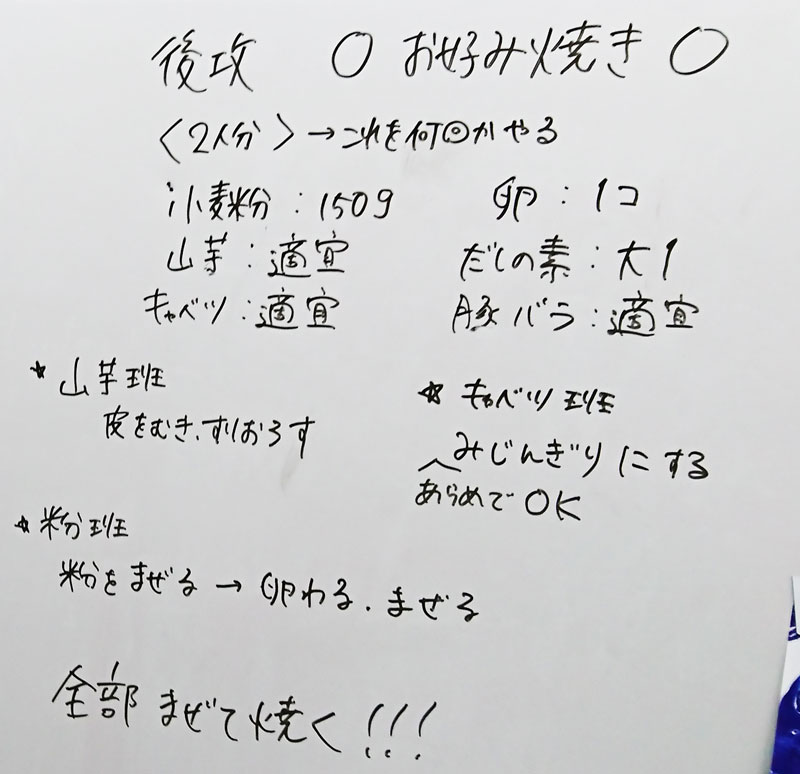 後攻 〇 お好み焼き 〇
〈2人分〉→これを何回かやる
小麦粉：150g 卵：1コ
山芋：適宜 だしの素：大1
キャベツ：適宜 豚バラ：適宜
★山芋班
皮をむき、すりおろす
★キャベツ班
みじんぎりにする
あらめでOK
★粉班
粉をまぜる→卵わる、まぜる
全部まぜて焼く!!!